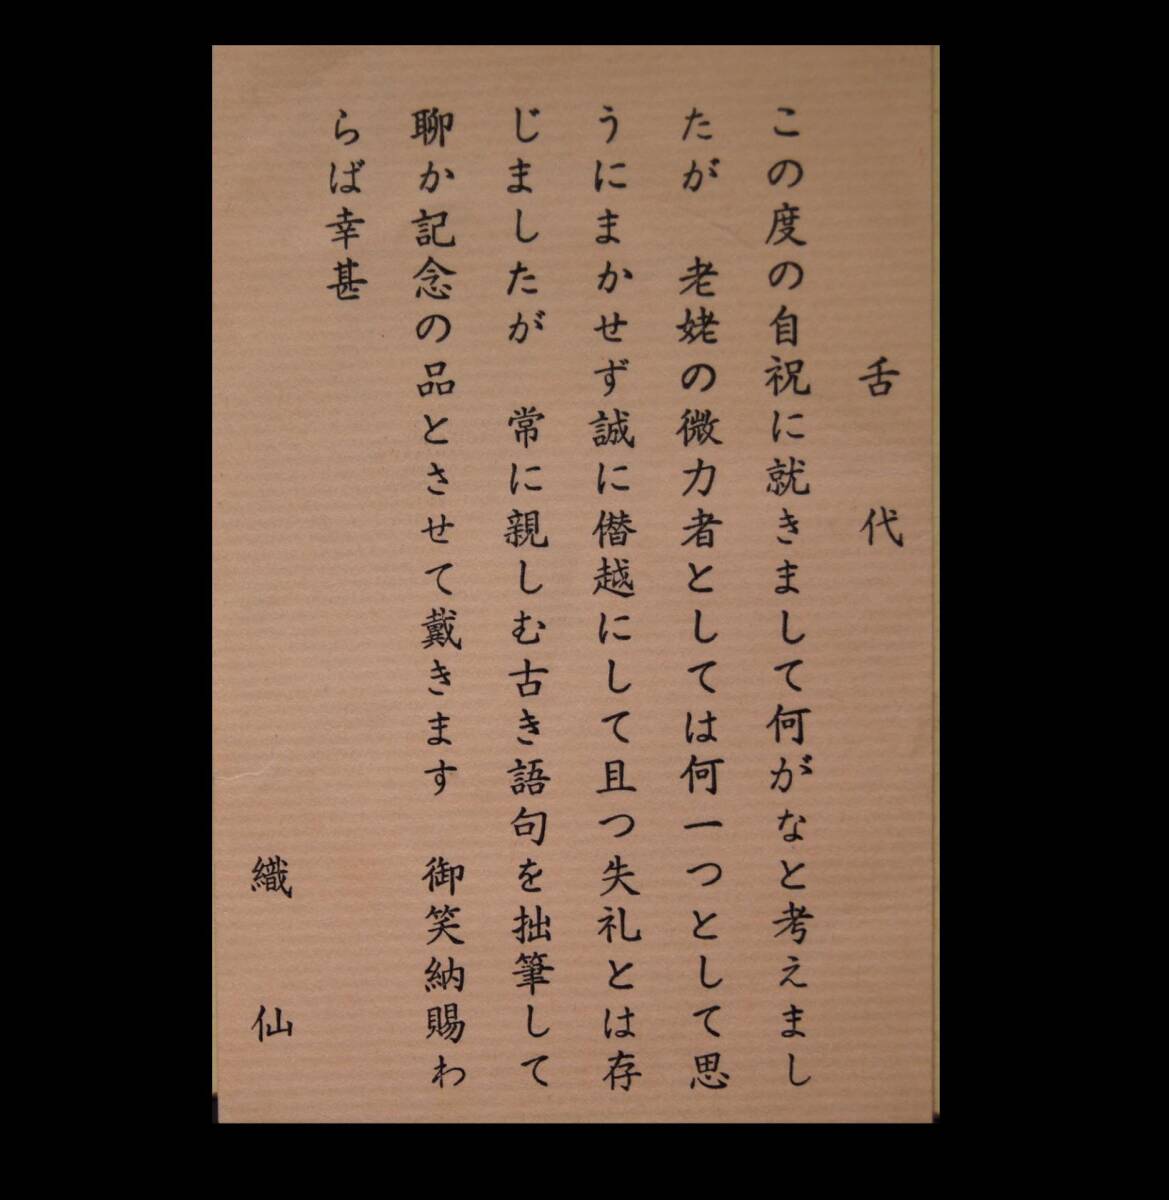 舌代
この度の自祝に就きまして何がなと考えまし
たが　老姥の微力者としては何一つとして思
うにまかせず誠に僭越にして且つ失礼とは存
じましたが　常に親しむ古き語句を拙筆して
聊か記念の品とさせて戴きます　御笑納賜わ
らば幸甚
織仙